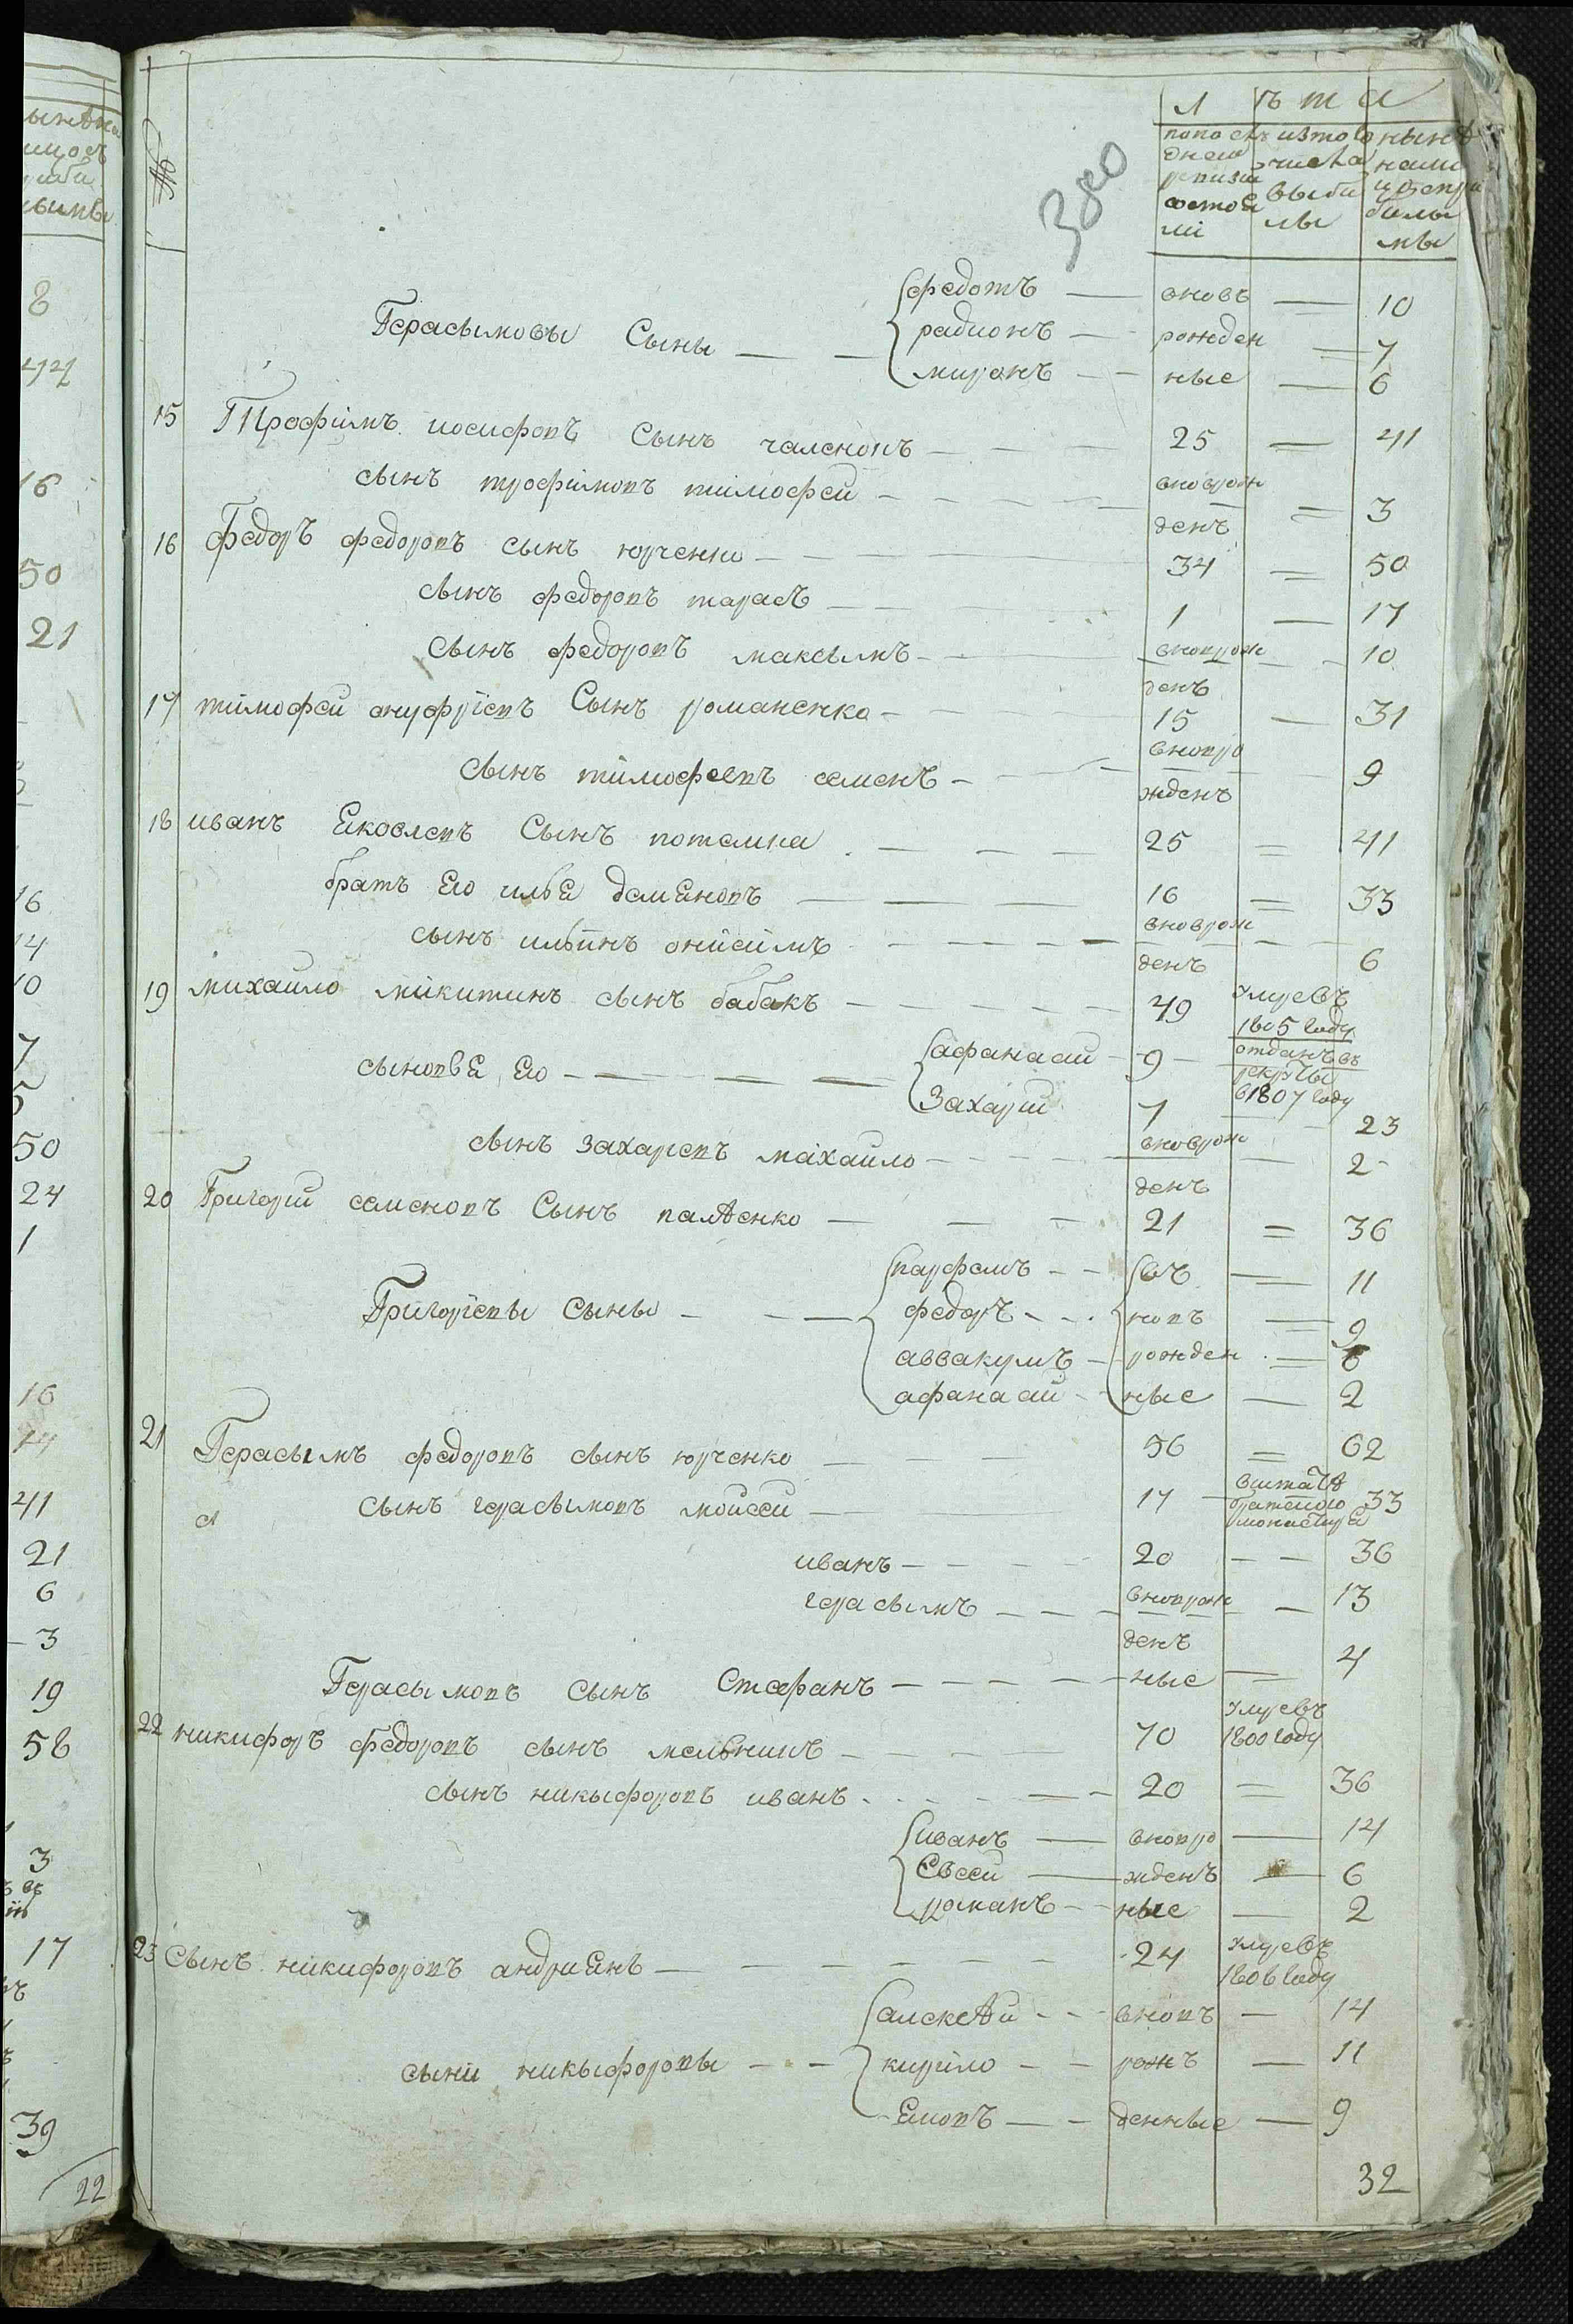 №
380
Лѣта
попоследнеи ревизии состояли
изтого числа выбыли
нынѣ налицо сприбылыми
Герасымовы Сыны
федотъ вновь 10
радионъ рожден 7
миронъ ные 6
15 Трофимъ иосифовъ Сынъ чаленовъ 25 41
сынъ трофимовъ тимофей вноврожденъ 3
16 Федоръ федоровъ сынъ юрченко 34 50
сынъ федоровъ тарасъ 1 17
сынъ федоровъ максымъ вноврожденъ 10
17 тимофей ануфріевъ Сынъ романенко 15 31
сынъ тимофеевъ семенъ вноврожденъ 9
18 иванъ Ековлевъ Сынъ потемка 25 41
братъ Ео ильЕ демЕновъ 16 33
сынъ ильинъ онисимъ вноврожденъ 6
19 михайло микитинъ сынъ бабакъ 49 умре въ 1805 году
сыновЕ Ео
афанасии 9 отданъ въ рекруты в 1807 году
Захарии 7 23
сынъ захаревъ михайло вноврожденъ 2
20 Григории семеновъ Сынъ палѣенко 21 36
Григоріевы сыны
парфемъ въ 11
федоръ новъ 9
аввакумъ рожден 6
афанасии ные 2
21 Герасымъ федоровъ сынъ юрченко 56 62
сынъ герасымовъ мойсей 17 вштатѣ братского монастырЕ 33
иванъ 20 36
герасымъ вноврожденъ 13
Герасымовъ сынъ Стефанъ ные 4
22 никифоръ федоровъ сынъ мельникъ 70 умре въ 1800 году
сынъ никыфоровъ иванъ 20 36
иванъ вновро 14
Евсей жденъ 6
романъ ные 2
23 Сынъ никифоровъ андриЕнъ 24 умре въ 1806 году
сыни никыфоровы
алексѣй вновъ 14
кирило рожъ 11
Емовъ денные 9
32
8
44
16
50
21
16
14
10
7
5
50
24
1
16
14
41
21
6
3
19
58
3
17
39
22